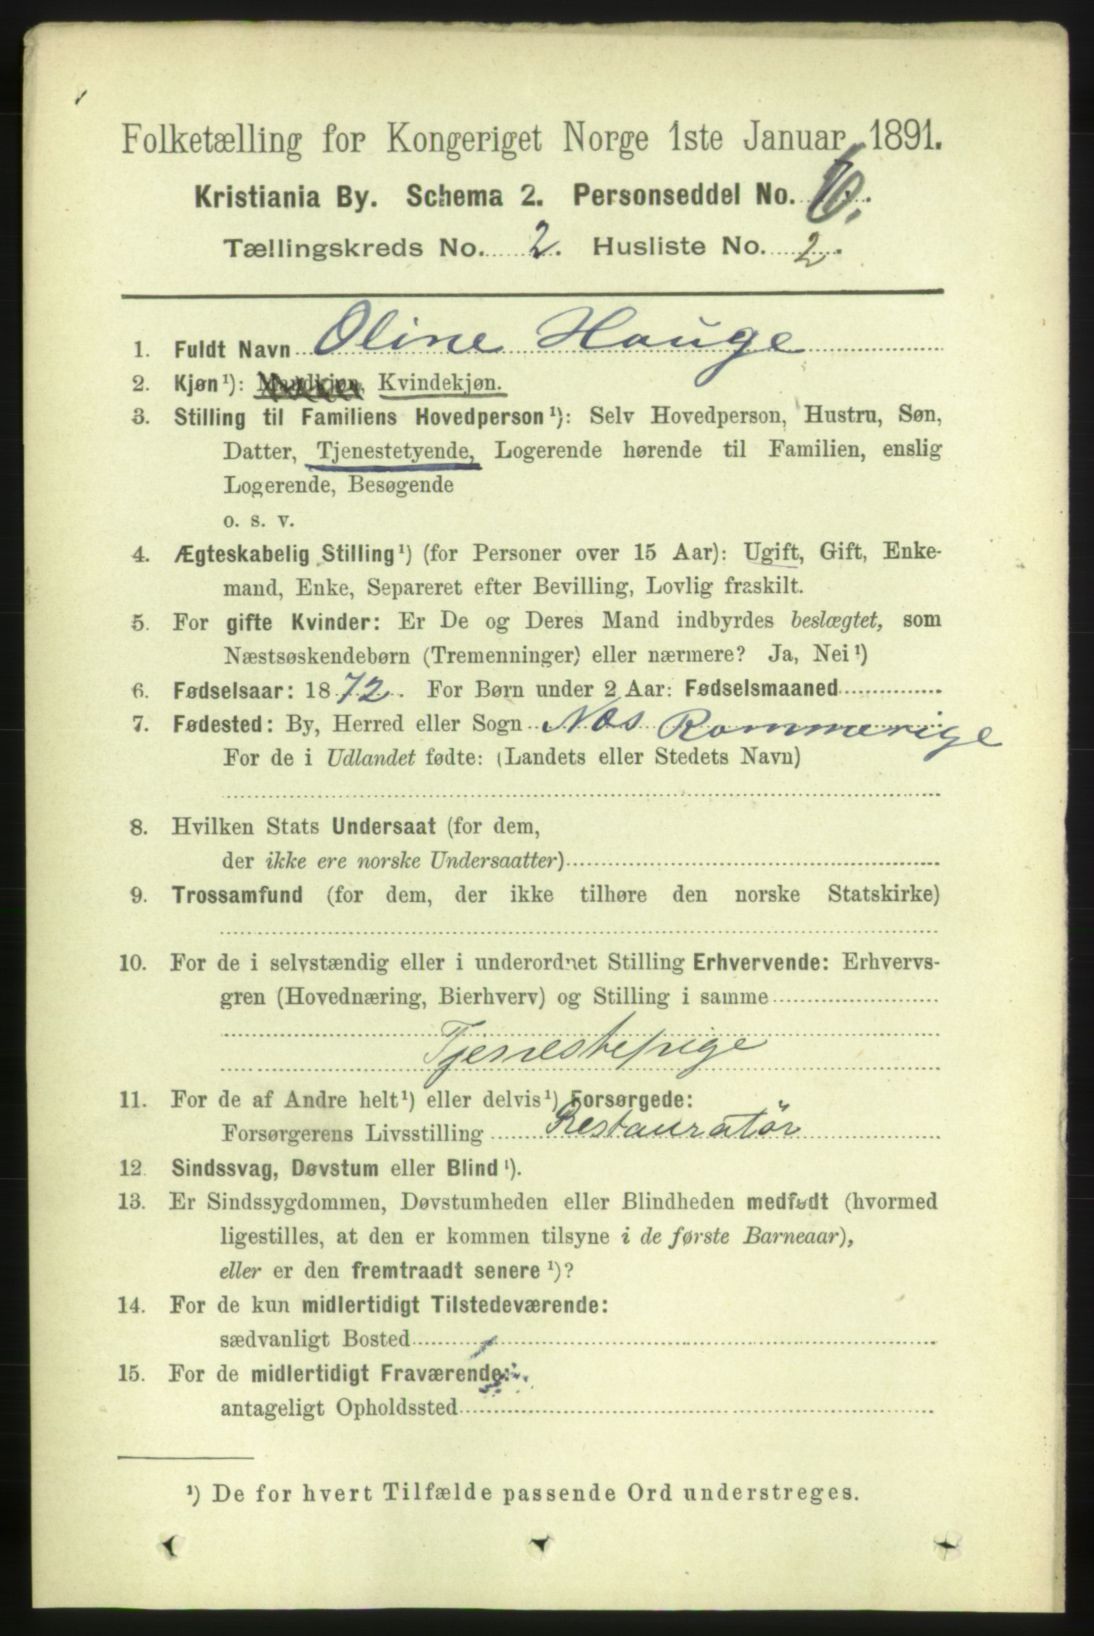 Folketælling for Kongeriget Norge 1ste Januar 1891.
Kristiania By. Schema 2. Personseddel No. 6.
Tællingskreds No. 2. Husliste No. 2.
1. Fuldt Navn Oline Hauge
2. Kjøn¹): Mandkjøn, Kvindekjøn.
3. Stilling til Familiens Hovedperson¹): Selv Hovedperson, Hustru, Søn,
Datter, Tjenestetyende, Logerende hørende til Familien, enslig
Logerende, Besøgende
o. s. v.
4. Ægteskabelig Stilling¹) (for Personer over 15 Aar): Ugift, Gift, Enke-
mand, Enke, Separeret efter Bevilling, Lovlig fraskilt.
5. For gifte Kvinder: Er De og Deres Mand indbyrdes beslægtet, som
Næstsøskendebørn (Tremenninger) eller nærmere? Ja, Nei¹)
6. Fødselsaar: 1872. For Børn under 2 Aar: Fødselsmaaned
7. Fødested: By, Herred eller Sogn Næs Rommerige
For de i Udlandet fødte: (Landets eller Stedets Navn)
8. Hvilken Stats Undersaat (for dem,
der ikke ere norske Undersaatter)
9. Trossamfund (for dem, der ikke tilhøre den norske Statskirke)
10. For de i selvstændig eller i underordnet Stilling Erhvervende: Erhvervs-
gren (Hovednæring, Bierhverv) og Stilling i samme
Tjenestepige
11. For de af Andre helt¹) eller delvis¹) Forsørgede:
Forsørgerens Livsstilling Restauratör
12. Sindssvag, Døvstum eller Blind¹).
13. Er Sindssygdommen, Døvstumheden eller Blindheden medfødt (hvormed
ligestilles, at den er kommen tilsyne i de første Barneaar),
eller er den fremtraadt senere¹)?
14. For de kun midlertidigt Tilstedeværende:
sædvanligt Bosted
15. For de midlertidigt Fraværende:
antageligt Opholdssted
¹) De for hvert Tilfælde passende Ord understreges.